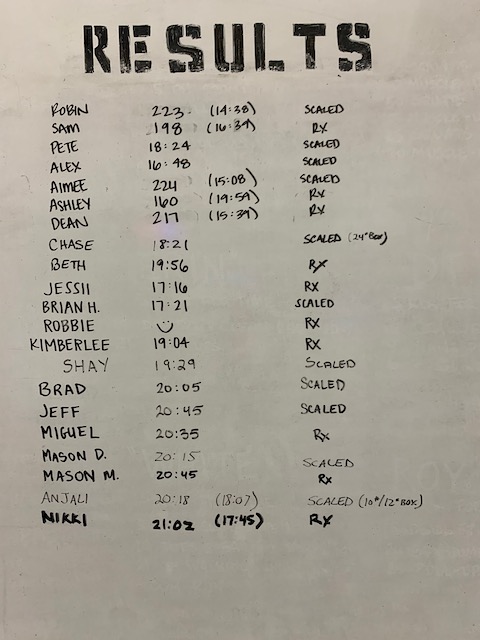 RESULTS
ROBIN 223 (14:38) SCALED
SAM 198 (16:34) RX
PETE 18:24 SCALED
ALEX 16:48 SCALED
AIMEE 224 (15:08) SCALED
ASHLEY 160 (19:59) RX
DEAN 217 (15:34) RX
CHASE 18:21 SCALED (24"BOX)
BETH 19:56 RX
JESSII 17:16 RX
BRIAN H. 17:21 SCALED
ROBBIE RX
KIMBERLEE 19:04 RX
SHAY 19:29 SCALED
BRAD 20:05 SCALED
JEFF 20:45 SCALED
MIGUEL 20:35 RX
MASON D. 20:15 SCALED
MASON M. 20:45 RX
ANJALI 20:18 (18:07) SCALED (10#/12"BOX)
NIKKI 21:02 (17:45) RX